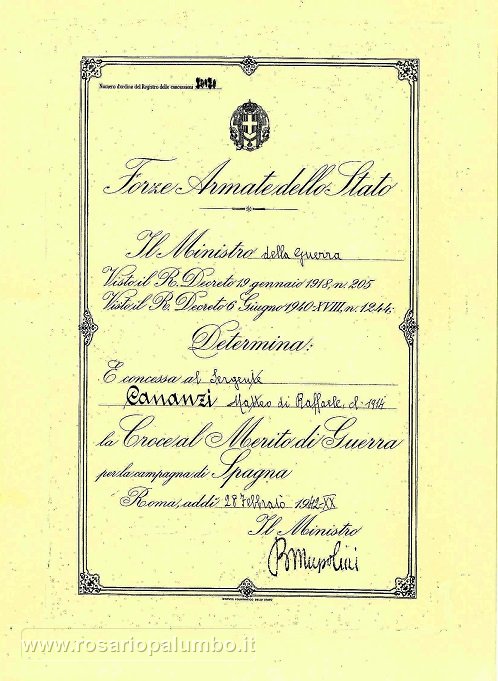 Numero d'ordine del Registro delle concessioni
Forze Armate dello Stato
Il Ministro della Guerra
Visto il R. Decreto 19 gennaio 1918, n. 205
Visto il R. Decreto 6 Giugno 1940-XVIII, n. 1244:
Determina:
È concessa al Sergente
Cananzi Matteo di Raffaele, cl. 1914
la Croce al Merito di Guerra
per la campagna di Spagna
Roma, addì 28 Febbraio 1942-XX
Il Ministro
BMussolini
www.rosariopalumbo.it